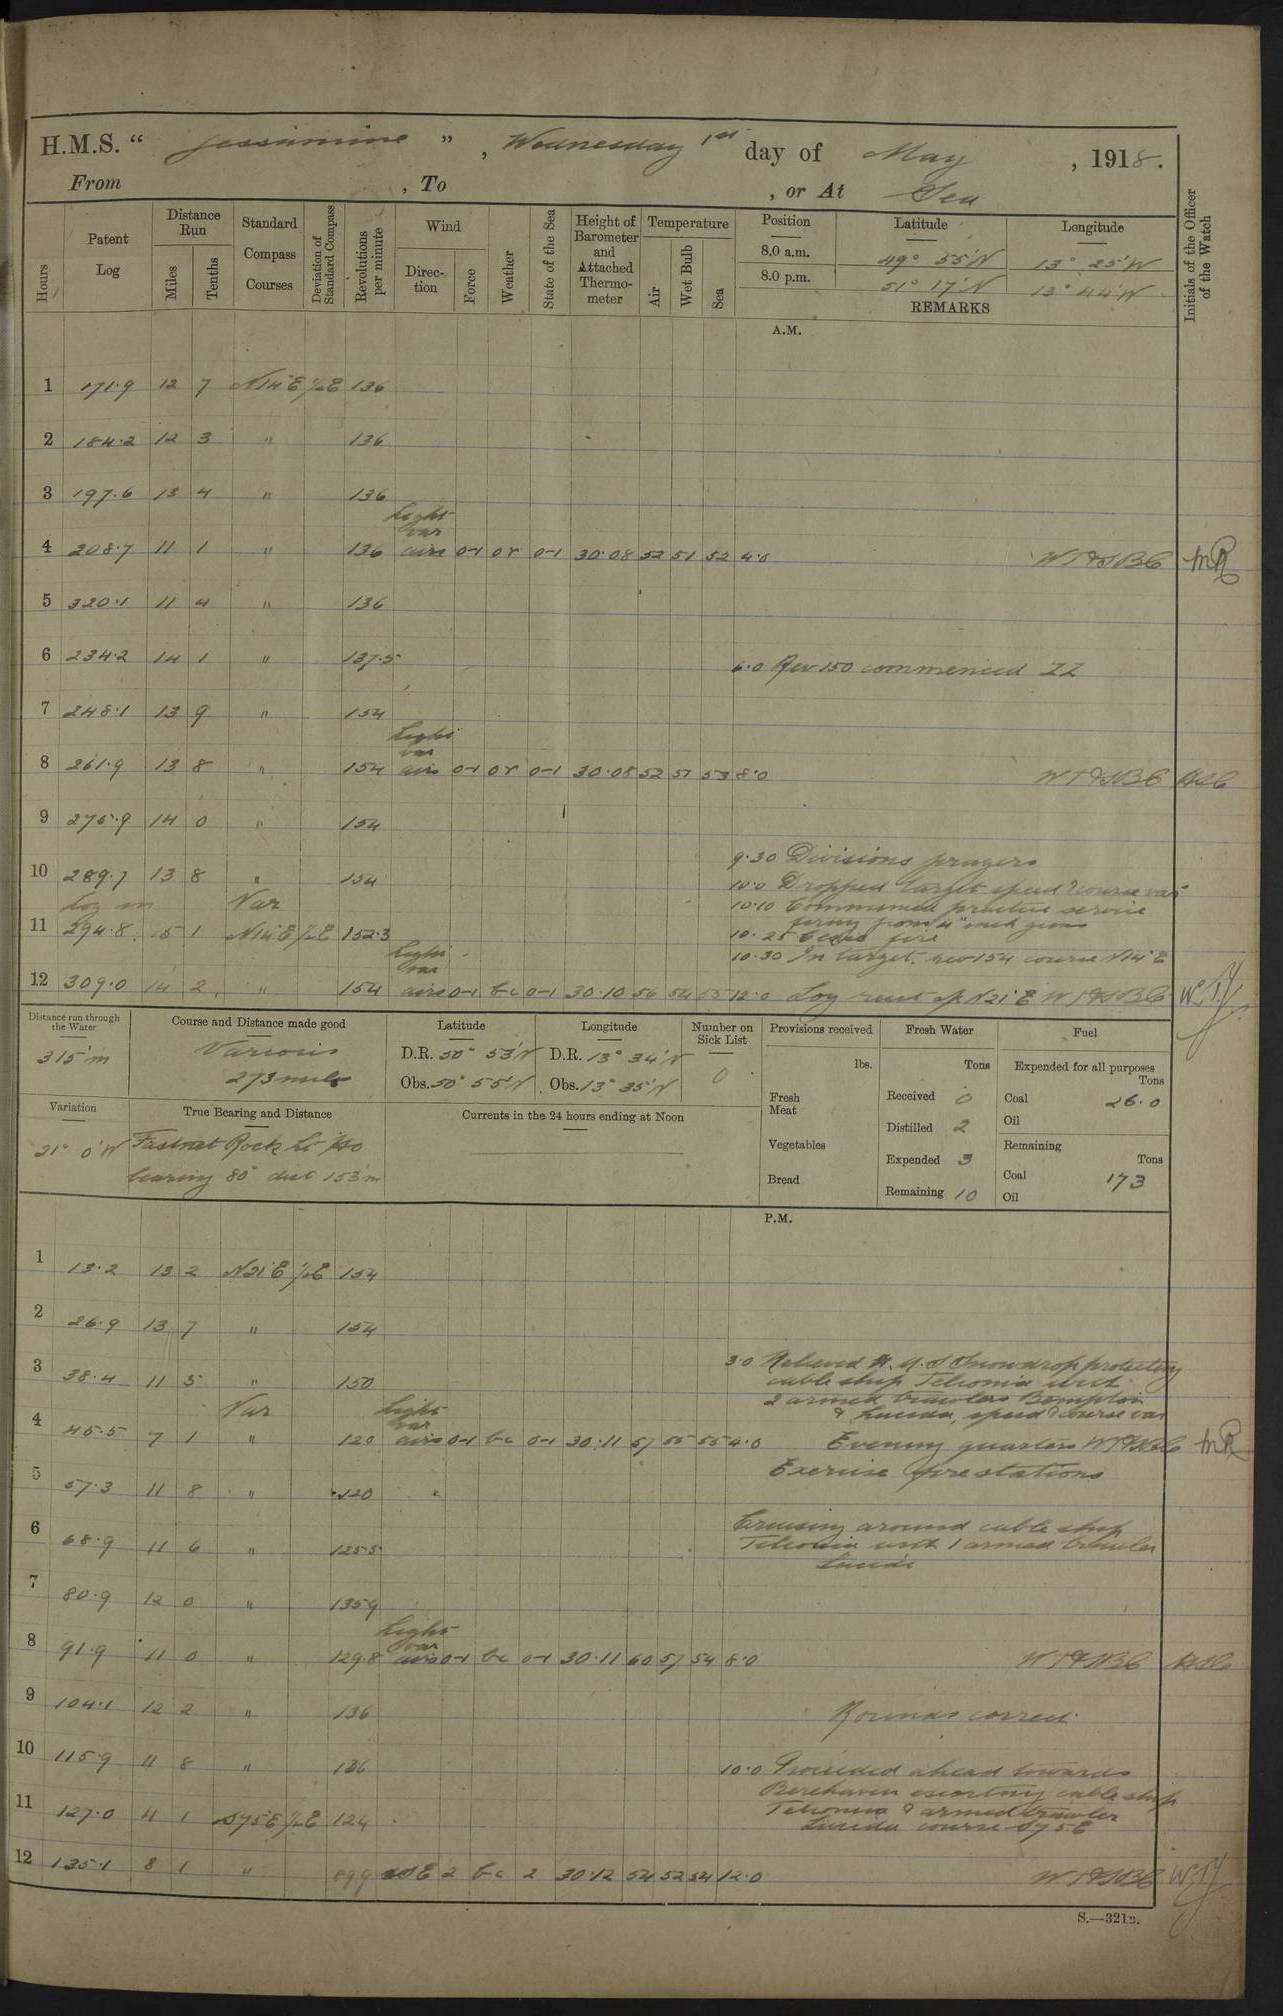 H.M.S. "Jessamine", Wednesday 1st day of May, 1918.
From , To , or At Sea
Hours
Patent Log
Distance Run
Miles
Tenths
Standard Compass Courses
Deviation of Standard Compass
Revolutions per minute
Wind
Direction
Force
Weather
State of the Sea
Height of Barometer and Attached Thermometer
Temperature
Air
Wet Bulb
Sea
Position Latitude Longitude
8.0 a.m. 49° 55' N 13° 25' W
8.0 p.m. 51° 17' N 13° 44' W
REMARKS
Initials of the Officer of the Watch
A.M.
1 171.9 12 7 N14°E 1/2E 136
2 184.2 12 3 " 136
3 197.6 13 4 " 136
4 208.7 11 1 " 136 Light var airs 0-1 or 0-1 30.08 52 51 52 4.0 WT&SBC
5 320.1 11 4 " 136
6 234.2 14 1 " 137.5
6.0 Rev 150 commenced ZZ
7 248.1 13 9 " 154
8 261.9 13 8 " 154 Light var airs 0-1 or 0-1 30.08 52 51 53 8.0 WT&SBC
9 275.9 14 0 " 154
9.30 Divisions prayers
10 289.7 13 8 " 154
10.0 Dropped target speed & course var
Log in Var
10.10 Commenced practice service
firing from 4" inch guns
11 294.8 5 1 N14°E 1/2E 152.3
10.25 Ceased fire
10.30 In target. rev 154 course N14°E
12 309.0 14 2 " 154 Light var airs 0-1 bc 0-1 30.10 56 54 55 12.0 Log reset a/c N21°E WT&SBC
Distance run through the Water
315'm
Course and Distance made good
Various
273 miles
Latitude
D.R. 50° 53' N
Obs. 50° 55' N
Longitude
D.R. 13° 34' N
Obs. 13° 35' N
Number on Sick List
0
Provisions received
lbs.
Fresh Meat
Vegetables
Bread
Fresh Water
Tons
Received 0
Distilled 2
Expended 3
Remaining 10
Fuel
Expended for all purposes
Tons
Coal 26.0
Oil
Remaining
Tons
Coal 173
Oil
Variation
21° 0' W
True Bearing and Distance
Fastnet Rock Lt
bearing 80° dist 153m
Currents in the 24 hours ending at Noon
P.M.
1 13.2 13 2 N21°E 1/2E 154
2 26.9 13 7 " 154
3 38.4 11 5 " 150
3.0 Relieved H.M.S Snowdrop protecting
cable ship Telconia with
2 armed trawlers Bempton
& Lucida, speed & course var
Var
4 45.5 7 1 " 120 Light var airs 0-1 bc 0-1 30.11 57 55 55 4.0 Evening quarters WT&SBC
Exercise fire stations
5 57.3 11 8 " 120
6 68.9 11 6 " 125.5
Cruising around cable ship
Telconia with 1 armed trawler
Lucida
7 80.9 12 0 " 135.9
8 91.9 11 0 " 129.8 Light var airs 0-1 bc 0-1 30.11 60 57 54 8.0 WT&SBC
9 104.1 12 2 " 136
Rounds correct.
10 115.9 11 8 " 136
10.0 Proceeded ahead towards
Berehaven escorting cable ship
Telconia & armed trawler
Lucida course S75E
11 127.0 11 1 S75E 1/2E 124
12 135.1 8 1 " 89.9 E 2 bc 2 30.12 54 52 54 12.0 WT&SBC
S.—321B.